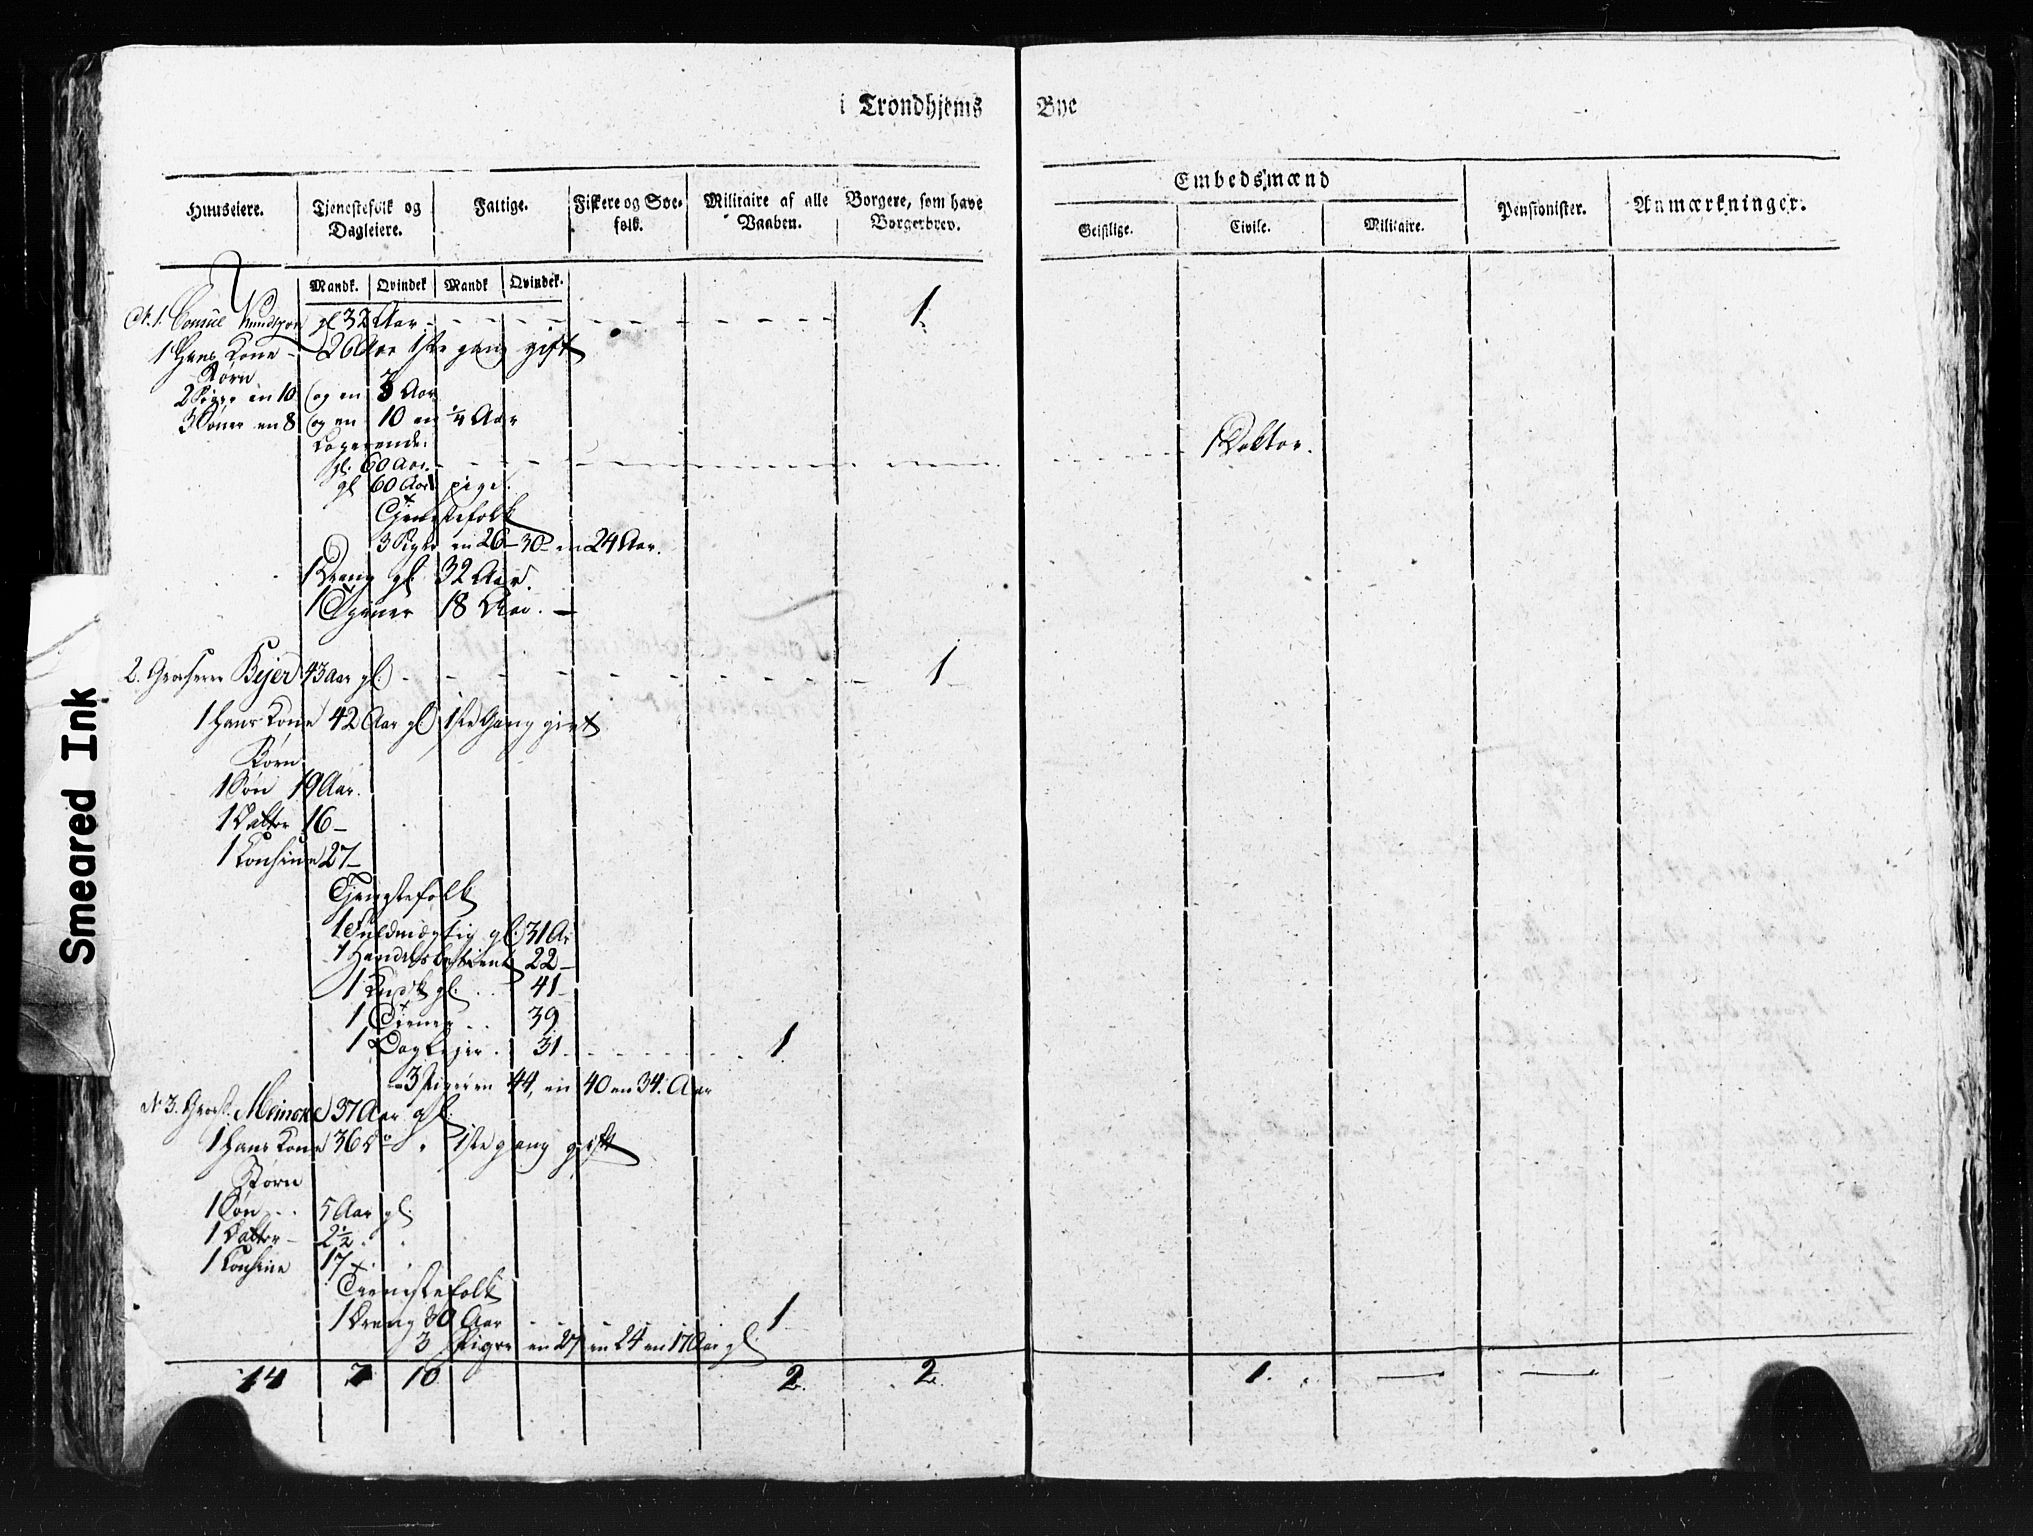 i Trondhjems Bye
Embedsmænd
Huuseiere. Tjenestefolk og Dagleiere. Fattige. Fiskere og Søefolk. Militaire af alle Vaaben. Borgere, som have Borgerbrev. Geistlige. Civile. Militaire. Pensionister. Anmærkninger.
Mandk. Qvindek Mandk Qvindek.
N. 1. Consul Knudtzon gl 32 Aar. 1
1 Hans Kone - 26 Aar 1ste gang gift
Børn
2 Piger en 10 og en 3 Aar
3 Sønner en 8 og en 10 en 1/4 Aar
Logerende:
gl. 60 Aar. 1 Doktor.
gl 60 Aar pige.
Tjenestefolk
3 Piger en 26 - 30 - en 24 Aar.
1 Dreng gl. 32 Aar.
1 Tjener 18 Aar. -
2. Grosserer Bejer 43 Aar gl. 1
1 Hans Kone 42 Aar gl. 1ste Gang givt
Børn
1 Søn 19 Aar.
1 Datter 16 -
1 Consine 27 -
Tjenestefolk
1 Fuldmægtig gl. 31 Ar
1 Handelsbetient 22 -
1 Kudsk gl. 41 -
1 Tiener 39
1 Daglejer. 31. 1
3 Piger en 44, en 40 en 34. Aar
N 3. Gross. Meincke 37 Aar gl.
1 Hans Kone 36 do 1ste gang gift
Børn
1 Søn 5 Aar gl.
1 Datter - 2 1/2
1 Consine 17
Tienestefolk
1 Dreng 30 Aar 1
3 Piger en 27 en 24 en 17 Aar gl.
14 7 10 2. 2. 1. — —
Smeared Ink